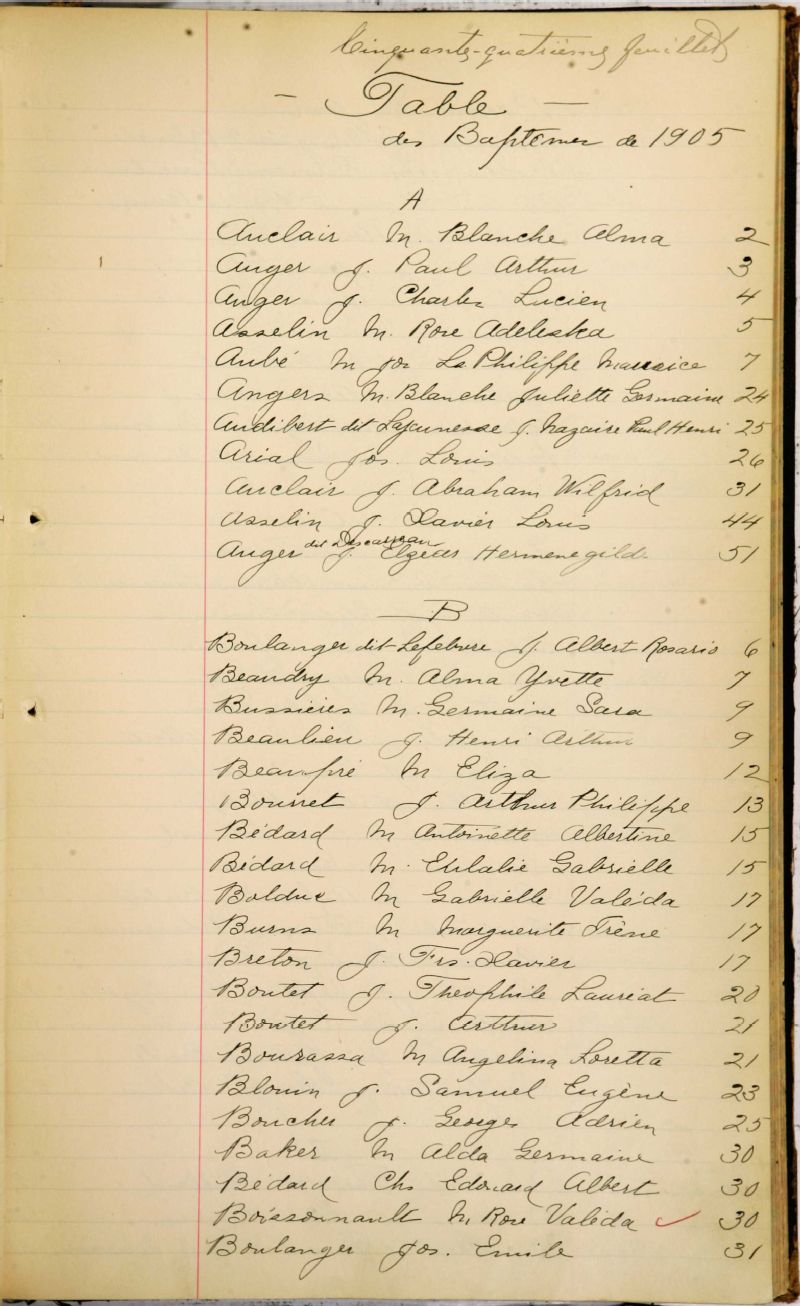 Cinquante-quatrième feuillet
- Table -
des Baptêmes de 1905
A
Auclair M. Blanche Alma 2
Anger J. Paul Arthur 3
Anger J. Charles Lucien 4
Asselin M. Rose Adeleska 5
Aubé M Jos Ls Philippe Maurice 7
Angers M. Blanche Juliette Germaine 24
Audibert dit Lajeunesse J. Nazaire Paul Henri 25
Arial Jos. Louis 26
Auclair J. Abraham Wilfrid 31
Asselin J. Xavier Louis 44
Anger dit J. Elzéar Hermenegilde 51
B
Boulanger dit Lefebvre J. Albert Rosario 6
Beaudry M. Alma Yvette 7
Bussieres M. Germaine Sara 9
Beaulieu J. Henri Arthur 9
Beaupré M Eliza 12
Bourret J. Arthur Philippe 13
Bédard M Antoinette Albertine 15
Bédard M. Eulalie Gabrielle 15
Bolduc M Gabrielle Valéda 17
Burns M Marguerite Irène 17
Breton J. Frs. Xavier 17
Boutet J. Theophile Lauréat 20
Boutet J. Arthur 21
Bourassa M Angelina Loretta 21
Blouin J. Samuel Eugène 23
Boucher J. Georges Adrien 25
Baker M Alda Germaine 30
Bédard Chs Edouard Albert 30
Boissonnault M. Rose Valéda ✓ 30
Boulanger Jos. Emile 31